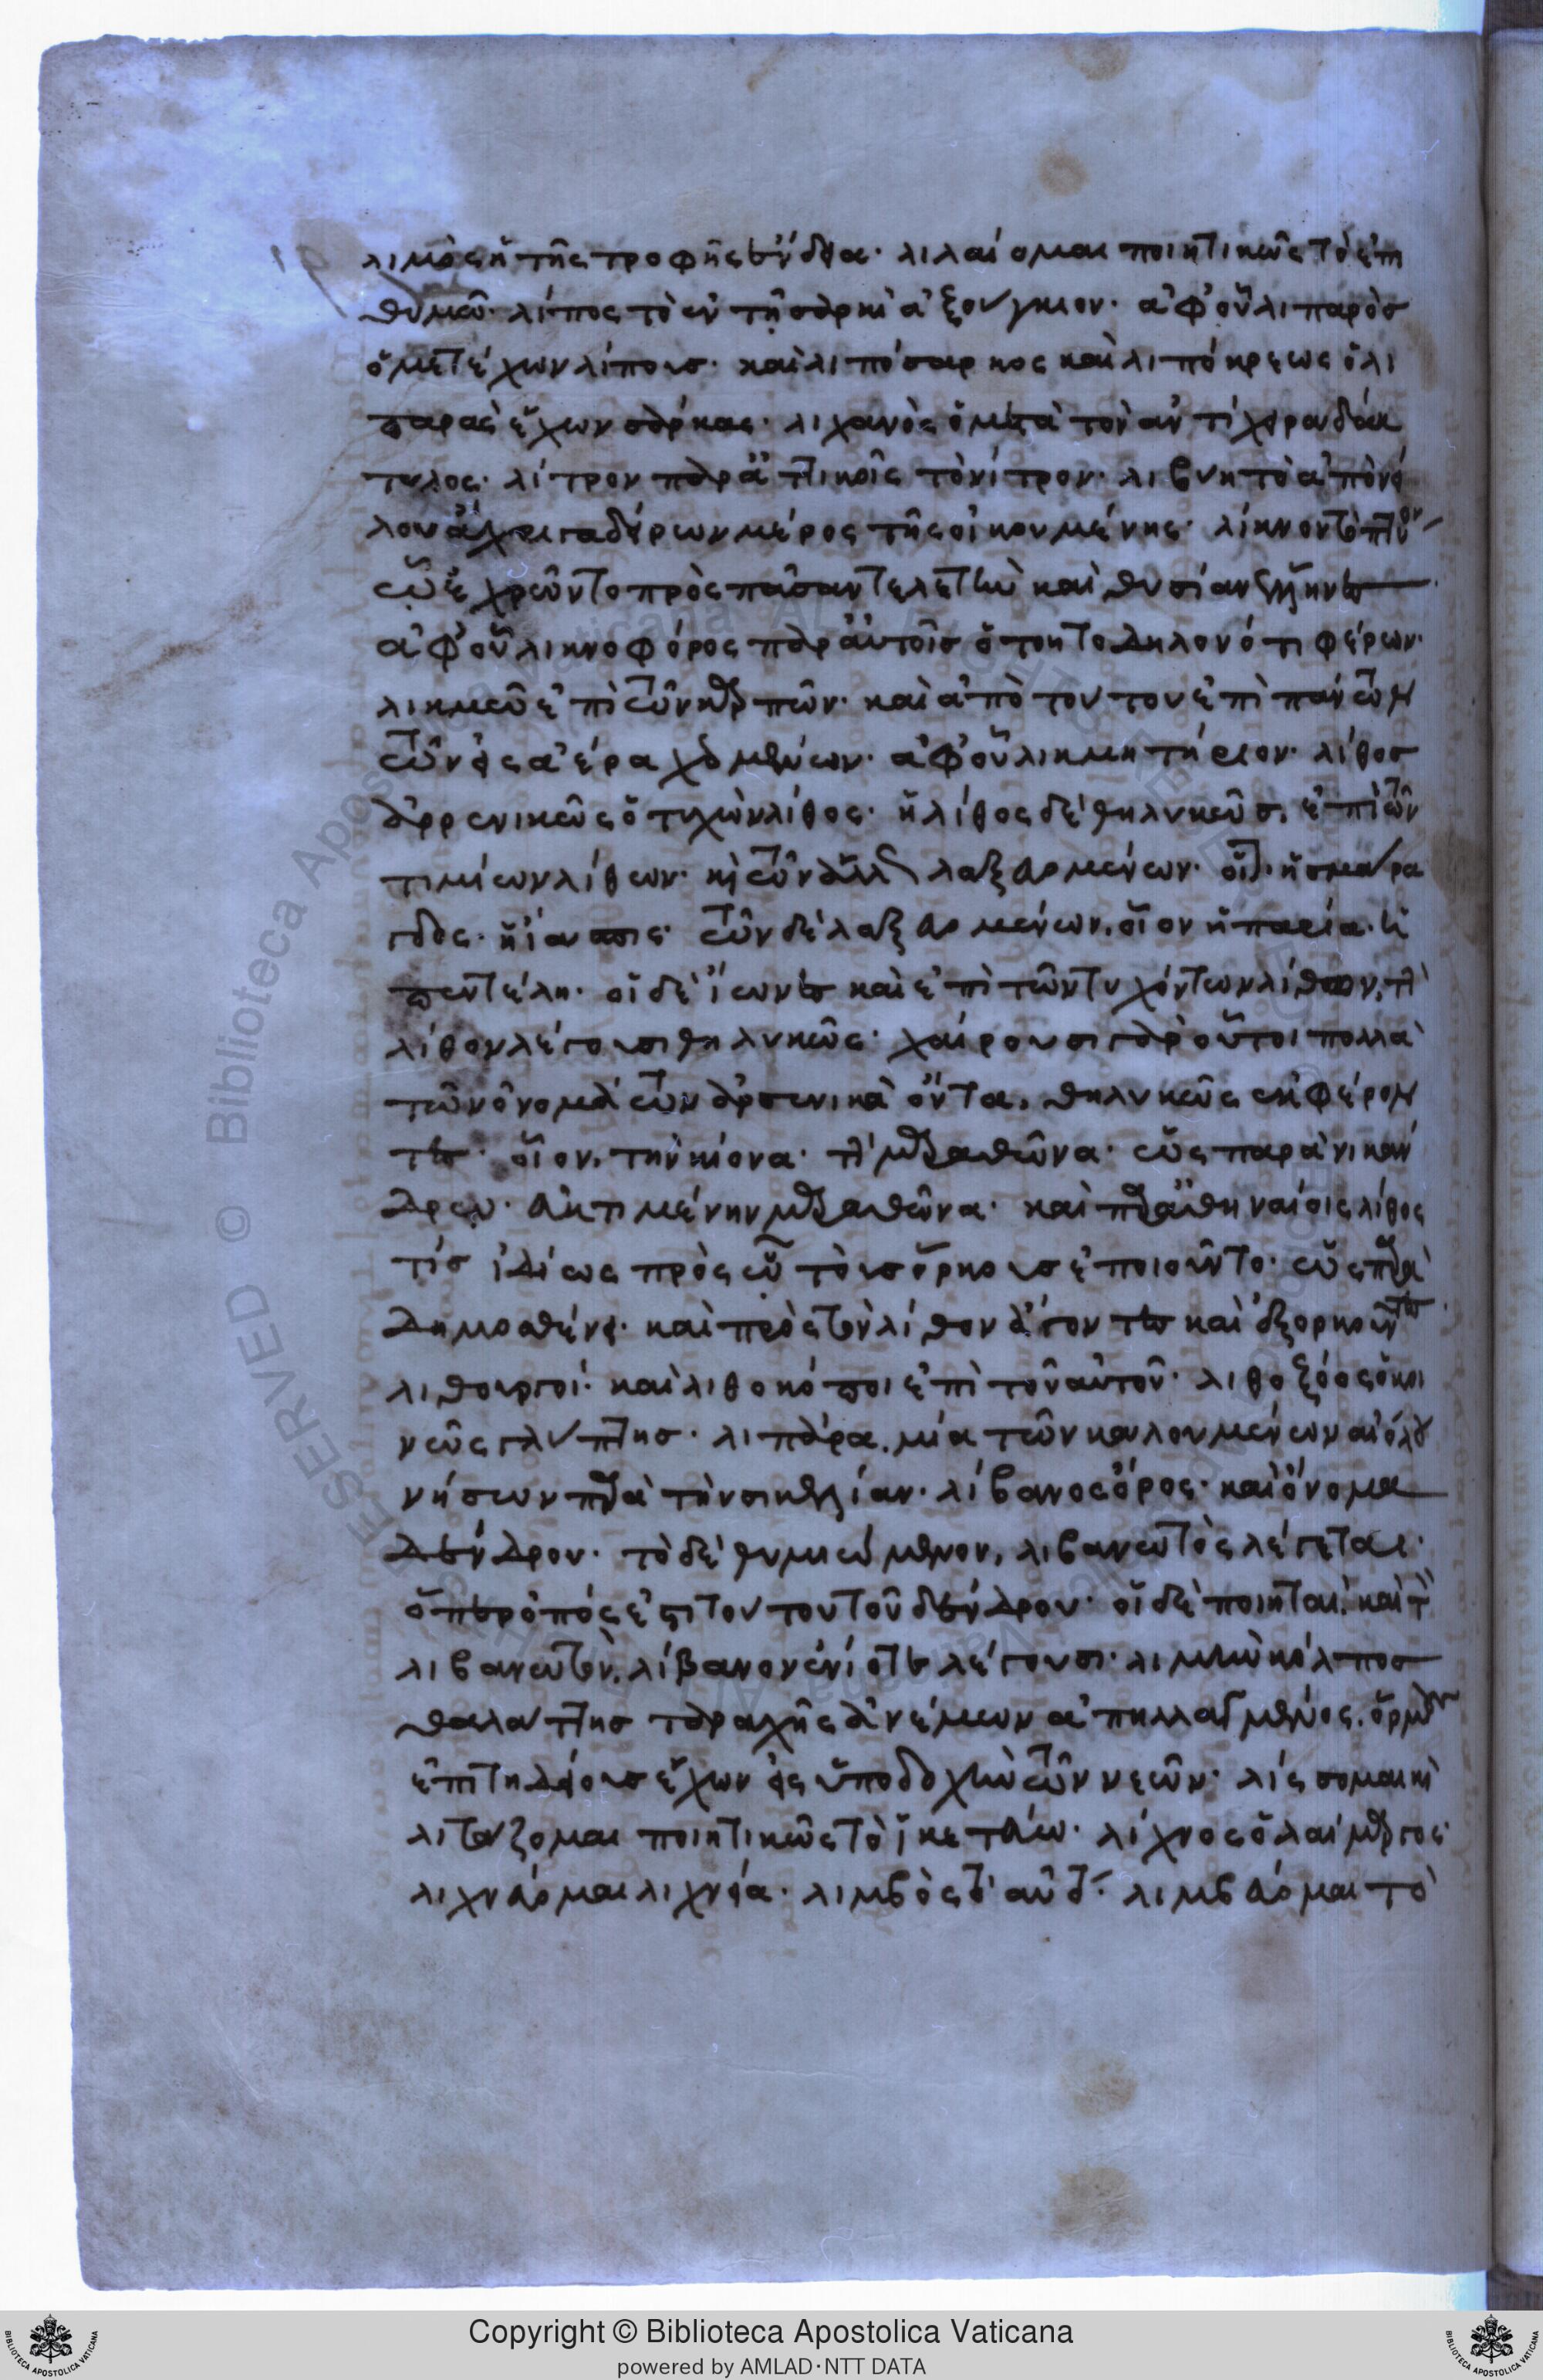 λιμὸς ἡ τῆς τροφῆς ἔνδεια· λιλαίομαι ποιητικῶς τὸ ἐπι
θυμῶ· λίπος τὸ ἐν τῇ σαρκὶ ἀξούγκιον· ἀφ' οὗ λιπαρὸς
ὁ μετέχων λίπους· καὶ λιπόσαρκος καὶ λιπόκρεως ὁ λι
παρὰς ἔχων σάρκας· λιχανὸς ὁ μετὰ τὸν ἀντίχειρα δάκ
τυλος· λίτρον παρὰ ἀττικοῖς τὸ νίτρον· λιβύη τὸ ἀπὸ νεί
λου ἄχρι γαδείρων μέρος τῆς οἰκουμένης· λίκνον τὸ πτύον
ᾧ ἐχρῶντο πρὸς πᾶσαν τελετὴν καὶ θυσίαν ἕλληνες
ἀφ' οὗ λικνοφόρος παρ' αὐτοῖς ὁ τοῦτο δηλονότι φέρων·
λικμῶ ἐπὶ τῶν καρπῶν· καὶ ἀπὸ τούτου ἐπὶ πάντων
τῶν εἰς ἀέρα χεομένων· ἀφ' οὗ λικμητήριον· λίθος
ἀρρενικῶς ὁ τυχὼν λίθος· ἡ λίθος δὲ θηλυκῶς, ἐπὶ τῶν
τιμίων λίθων· καὶ τῶν λαξευομένων· οἷον ἡ σμάρα
γδος· ἡ ἴασπις· τῶν δὲ λαξευομένων, οἷον ἡ παρία· ἡ
πεντέλη· οἱ δὲ ἴωνες καὶ ἐπὶ τῶν τυχόντων λίθων, τὴν
λίθον λέγουσι θηλυκῶς· χαίρουσι γὰρ οὗτοι πολλὰ
τῶν ὀνομάτων ἀρσενικὰ ὄντα, θηλυκῶς ἐκφέρον
τες· οἷον, τὴν κίονα· τὴν μαραθῶνα· ὡς παρὰ νικάν
δρῳ· εὐκτιμένην μαραθῶνα· καὶ παρὰ ἀθηναίοις λίθος
τίς ἰδίως πρὸς ᾧ τοὺς ὅρκους ἐποιοῦντο· ὡς παρὰ
δημοσθένει· καὶ πρὸς τὸν λίθον ἄγοντες καὶ ἐξορκοῦντες·
λιθουργοί· καὶ λιθοκόποι ἐπὶ τοῦ αὐτοῦ· λιθοξόος ὁ κοι
νῶς γλύπτης· λιπάρα, μία τῶν καλουμένων αἰόλου
νήσων παρὰ τὴν σικελίαν· λίβανος ὄρος· καὶ ὄνομα
δένδρου· τὸ δὲ θυμιώμενον, λιβανωτὸς λέγεται·
ὅπερ ὀπός ἐστι τούτου τοῦ δένδρου· οἱ δὲ ποιηταὶ, καὶ τὸν
λιβανωτὸν, λίβανον ἐνίοτε λέγουσι· λιμὴν κόλπος
θαλάττης ταραχῆς ἀνέμων ἀπηλλαγμένος, ὅρμον
ἐπιτηδείους ἔχων εἰς ὑποδοχὴν τῶν νεῶν· λίσσομαι καὶ
λιτάζομαι ποιητικῶς τὸ ἱκετεύω· λίχνος ὁ λαίμαργος·
λιχνεύομαι λιχνεία· λιμβὸς τὸ αὐτό· λιμβεύομαι τὸ
Copyright © Biblioteca Apostolica Vaticana
powered by AMLAD·NTT DATA